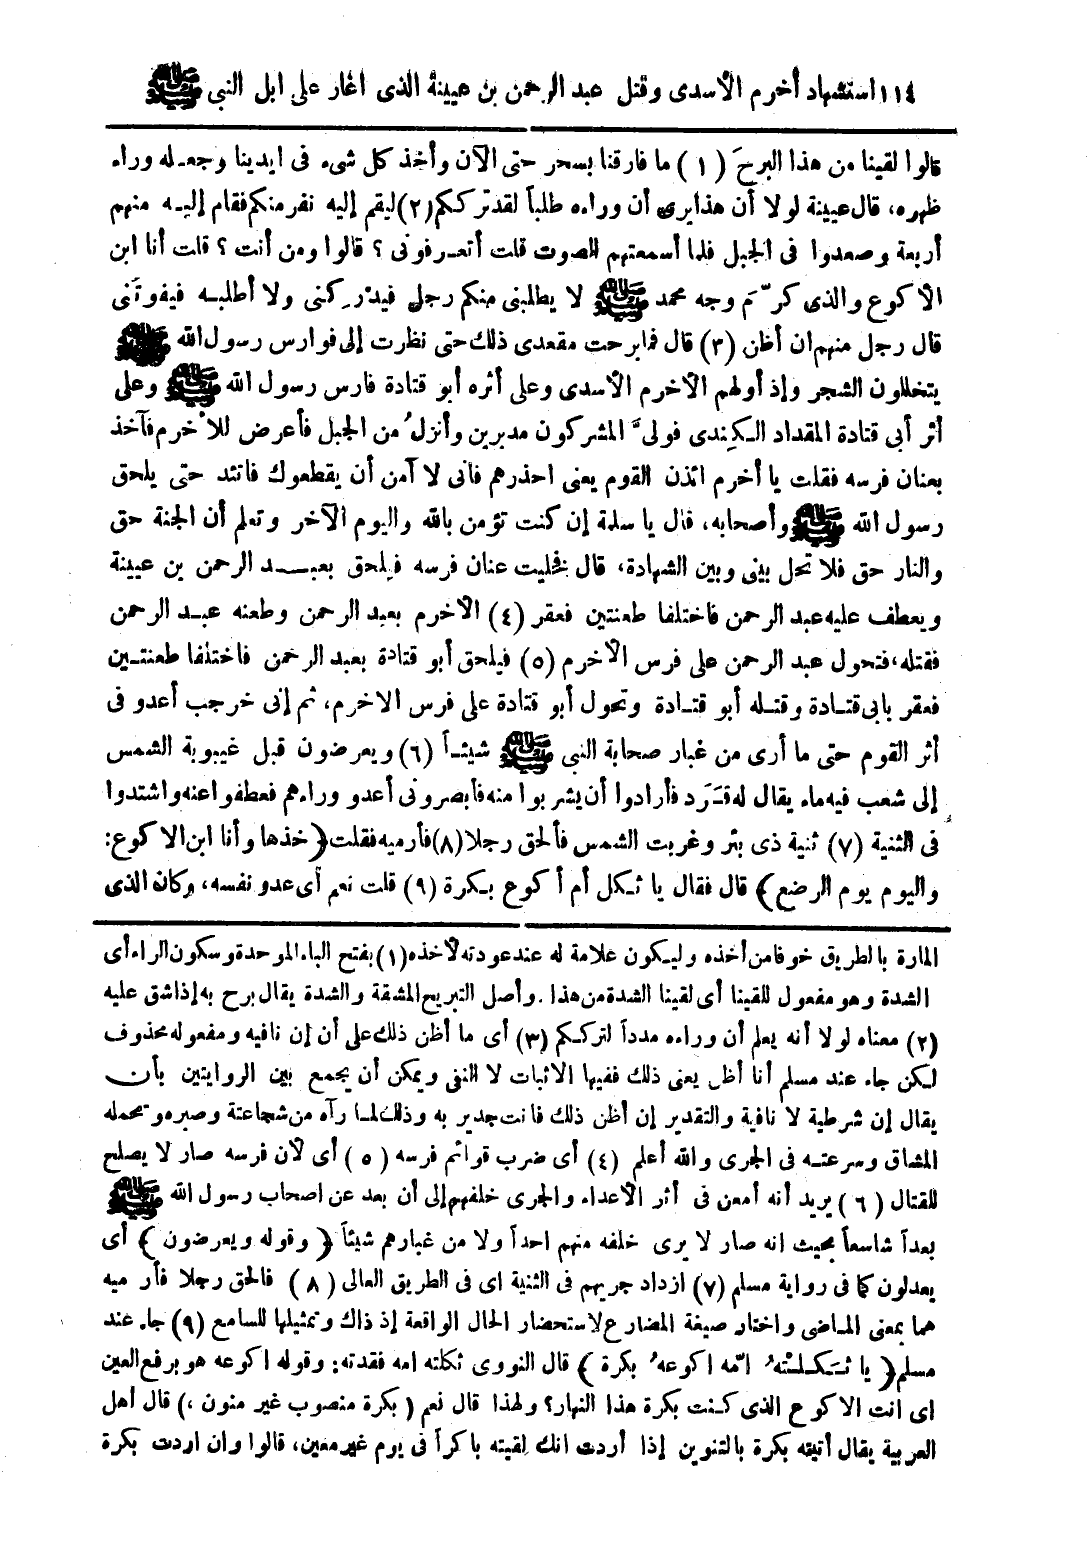 ١١٤ استشهاد أخرم الأسدى وقتل عبد الرحمن بن عيينة الذى اغار على ابل النبى ﷺ
قالوا لقينا من هذا البرحَ (١) ما فارقنا بسحر حتى الآن وأخذ كل شىء فى ايدينا وجعله وراء
ظهره، قال عيينة لولا أن هذا يرى أن وراءه طلباً لقد تركـكم (٢) ليقم إليه نفر منكم فقام إليه منهم
أربعة وصعدوا فى الجبل فلما أسمعتهم الصوت قلت أتعرفونى ؟ قالوا ومن أنت ؟ قلت أنا ابن
الاكوع والذى كرّم وجه محمد ﷺ لا يطلبنى منكم رجل فيدركنى ولا أطلبه فيفوتَنى
قال رجل منهم ان أظن (٣) قال فما برحت مقعدى ذلك حتى نظرت إلى فوارس رسول الله ﷺ
يتخللون الشجر وإذ أولهم الأخرم الأسدى وعلى أثره أبو قتادة فارس رسول الله ﷺ وعلى
أثر أبي قتادة المقداد الكندى فولىَّ المشركون مدبرين وأنزلُ من الجبل فأعرض للأخرم فآخذ
بعنان فرسه فقلت يا أخرم ائذن القوم يعنى احذرهم فانى لا آمن أن يقطعوك فاتئد حتى يلحق
رسول الله ﷺ وأصحابه، قال يا سلمة إن كنت تؤمن بالله واليوم الآخر وتعلم أن الجنة حق
والنار حق فلا تحل بينى وبين الشهادة، قال فخليت عنان فرسه فيلحق بعبـد الرحمن بن عيينة
ويعطف عليه عبد الرحمن فاختلفا طعنتين فعقر (٤) الأخرم بعبد الرحمن وطعنه عبد الرحمن
فقتله، فتحول عبد الرحمن على فرس الأخرم (٥) فيلحق أبو قتادة بعبد الرحمن فاختلفا طعنتـين
فعقر بابى قتـادة وقتـله أبو قتـادة وتحول أبو قتادة على فرس الاخرم، ثم إنى خرجب أعدو فى
أثر القوم حتى ما أرى من غبار صحابة النبى ﷺ شيئـاً (٦) ويعرضون قبل غيبوبة الشمس
إلى شعب فيه ماء يقال له ذو قَرَد فأرادوا أن يشربوا منه فأبصرونى أعدو وراءهم فعطفوا عنه واشتدوا
فى الثنية (٧) ثنية ذى بئر وغربت الشمس فألحق رجلا (٨) فأرميه فقلت ﴿ خذها وأنا ابن الاكوع:
واليوم يوم الرضع ﴾ قال فقال يا ثـكل أم أكوع بـكرة (٩) قلت نعم أى عدو نفسه، وكان الذى
المارة بالطريق خوفا من أخذه وليـكون علامة له عند عودته لأخذه (١) بفتح الباء الموحدة وسكون الراء أى
الشدة وهو مفعول للقينا أى لقينا الشدة من هذا . وأصل التبريح المشقة والشدة يقال برح به إذا شق عليه
(٢) معناه لولا أنه يعلم أن وراءه مدداً لتركـكم (٣) أى ما أظن ذلك على أن إن نافيه ومفعوله محذوف
لـكن جاء عند مسلم أنا أظن يعنى ذلك ففيها الاثبات لا النفى ويمكن أن يجمع بين الروايتين بأن
يقال إن شرطية لا نافية والتقدير إن أظن ذلك فانت جدير به وذلك لمـا رآه من شجاعتة وصبره وتحمله
المشاق وسرعتـه فى الجرى والله أعلم (٤) أى ضرب قوائم فرسه (٥) أى لأن فرسه صار لا يصلح
للقتال (٦) يريد أنه أمعن فى أثر الأعداء والجرى خلفهم إلى أن بعد عن اصحاب رسول الله ﷺ
بعداً شاسعاً بحيث انه صار لا يرى خلفه منهم احداً ولا من غبارهم شيئاً ﴿ وقوله ويعرضون ﴾ أى
يعدلون كما فى رواية مسلم (٧) ازداد جريهم فى الثنية اى فى الطريق العالى (٨) فالحق رجلا فأرميه
هما بمعنى المـاضى واختار صيغة المضارع لاستحضار الحال الواقعة إذ ذاك وتمثيلها للسامع (٩) جاء عند
مسلم ﴿ يا ثـكـلـتْهُ امّه اكوعهُ بكرة ﴾ قال النووى ثكلته امه فقدته: وقوله اكوعه هو برفع العين
اى انت الاكوع الذى كـنت بكرة هذا النهار؟ ولهذا قال نعم (بكرة منصوب غير منون ،) قال أهل
العربية يقال أتيته بكرة بالتنوين إذا أردت انك لقيته باكراً فى يوم غير معين، قالوا وان اردت بكرة